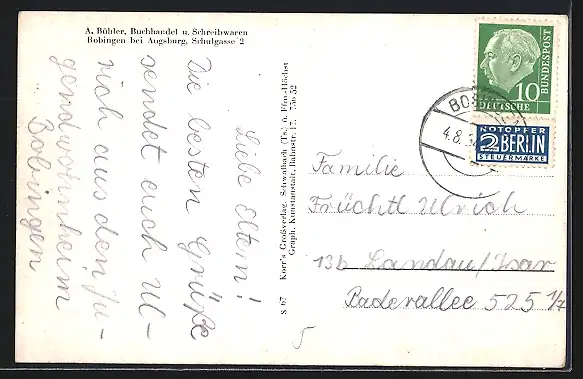 A. Bühler, Buchhandel u. Schreibwaren
Bobingen bei Augsburg, Schulgasse 2
Liebe Eltern!
Die besten Grüße
sendet euch Ul-
rich aus dem Ju-
gendwohnheim
Bobingen
S 67 Korr's Großverlag, Schwalbach (Ts.) ü. Ffm.-Höchst
Graph. Kunstanstalt, Bahnstr. 17. 756 52
10
DEUTSCHE
BUNDESPOST
NOTOPFER
2 BERLIN
STEUERMARKE
4.8.5
Familie
Früchtl Ulrich
13b Landau/Isar
Paderallee 525 1/7
5